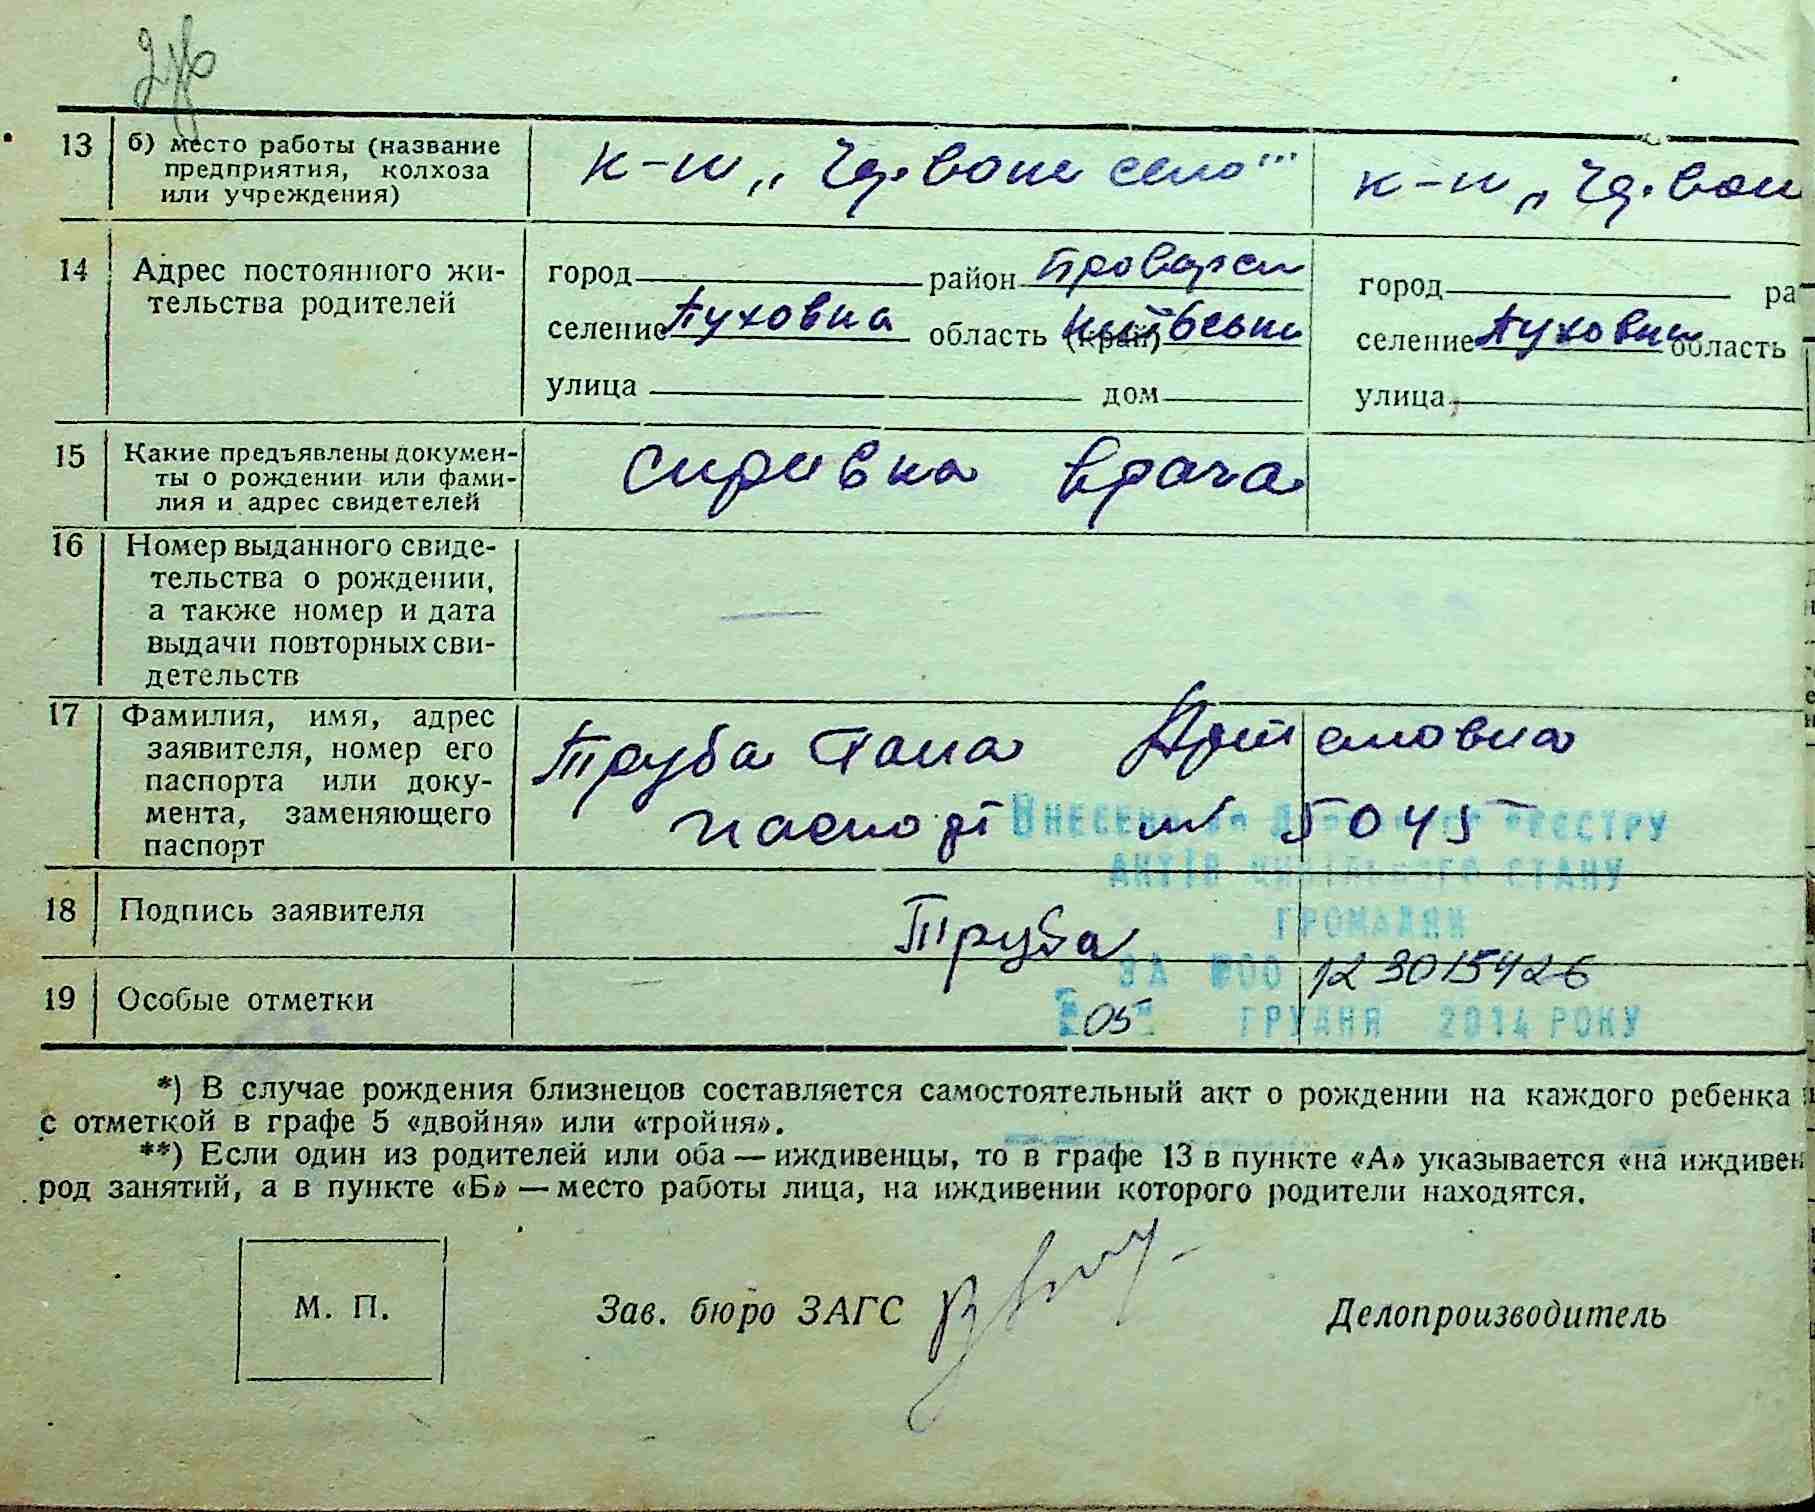 13 б) место работы (название предприятия, колхоза или учреждения) к-п „Черв. село" к-п „Черв.
14 Адрес постоянного жительства родителей
город район Броварск город ра
селение Пуховка область (край) Київськ селение Пуховка область
улица дом улица
15 Какие предъявлены документы о рождении или фамилия и адрес свидетелей справка врача
16 Номер выданного свиде-
тельства о рождении,
а также номер и дата
выдачи повторных сви-
детельств
17 Фамилия, имя, адрес
заявителя, номер его
паспорта или доку-
мента, заменяющего
паспорт
Труба
паспорт № 5045
Внесено до Державного реєстру
актів цивільного стану
громадян
18 Подпись заявителя Труба
за №00 123015426
19 Особые отметки
05 грудня 2014 року
*) В случае рождения близнецов составляется самостоятельный акт о рождении на каждого ребенка
с отметкой в графе 5 «двойня» или «тройня».
**) Если один из родителей или оба — иждивенцы, то в графе 13 в пункте «А» указывается «на иждивен
род занятий, а в пункте «Б» — место работы лица, на иждивении которого родители находятся.
М. П. Зав. бюро ЗАГС Делопроизводитель